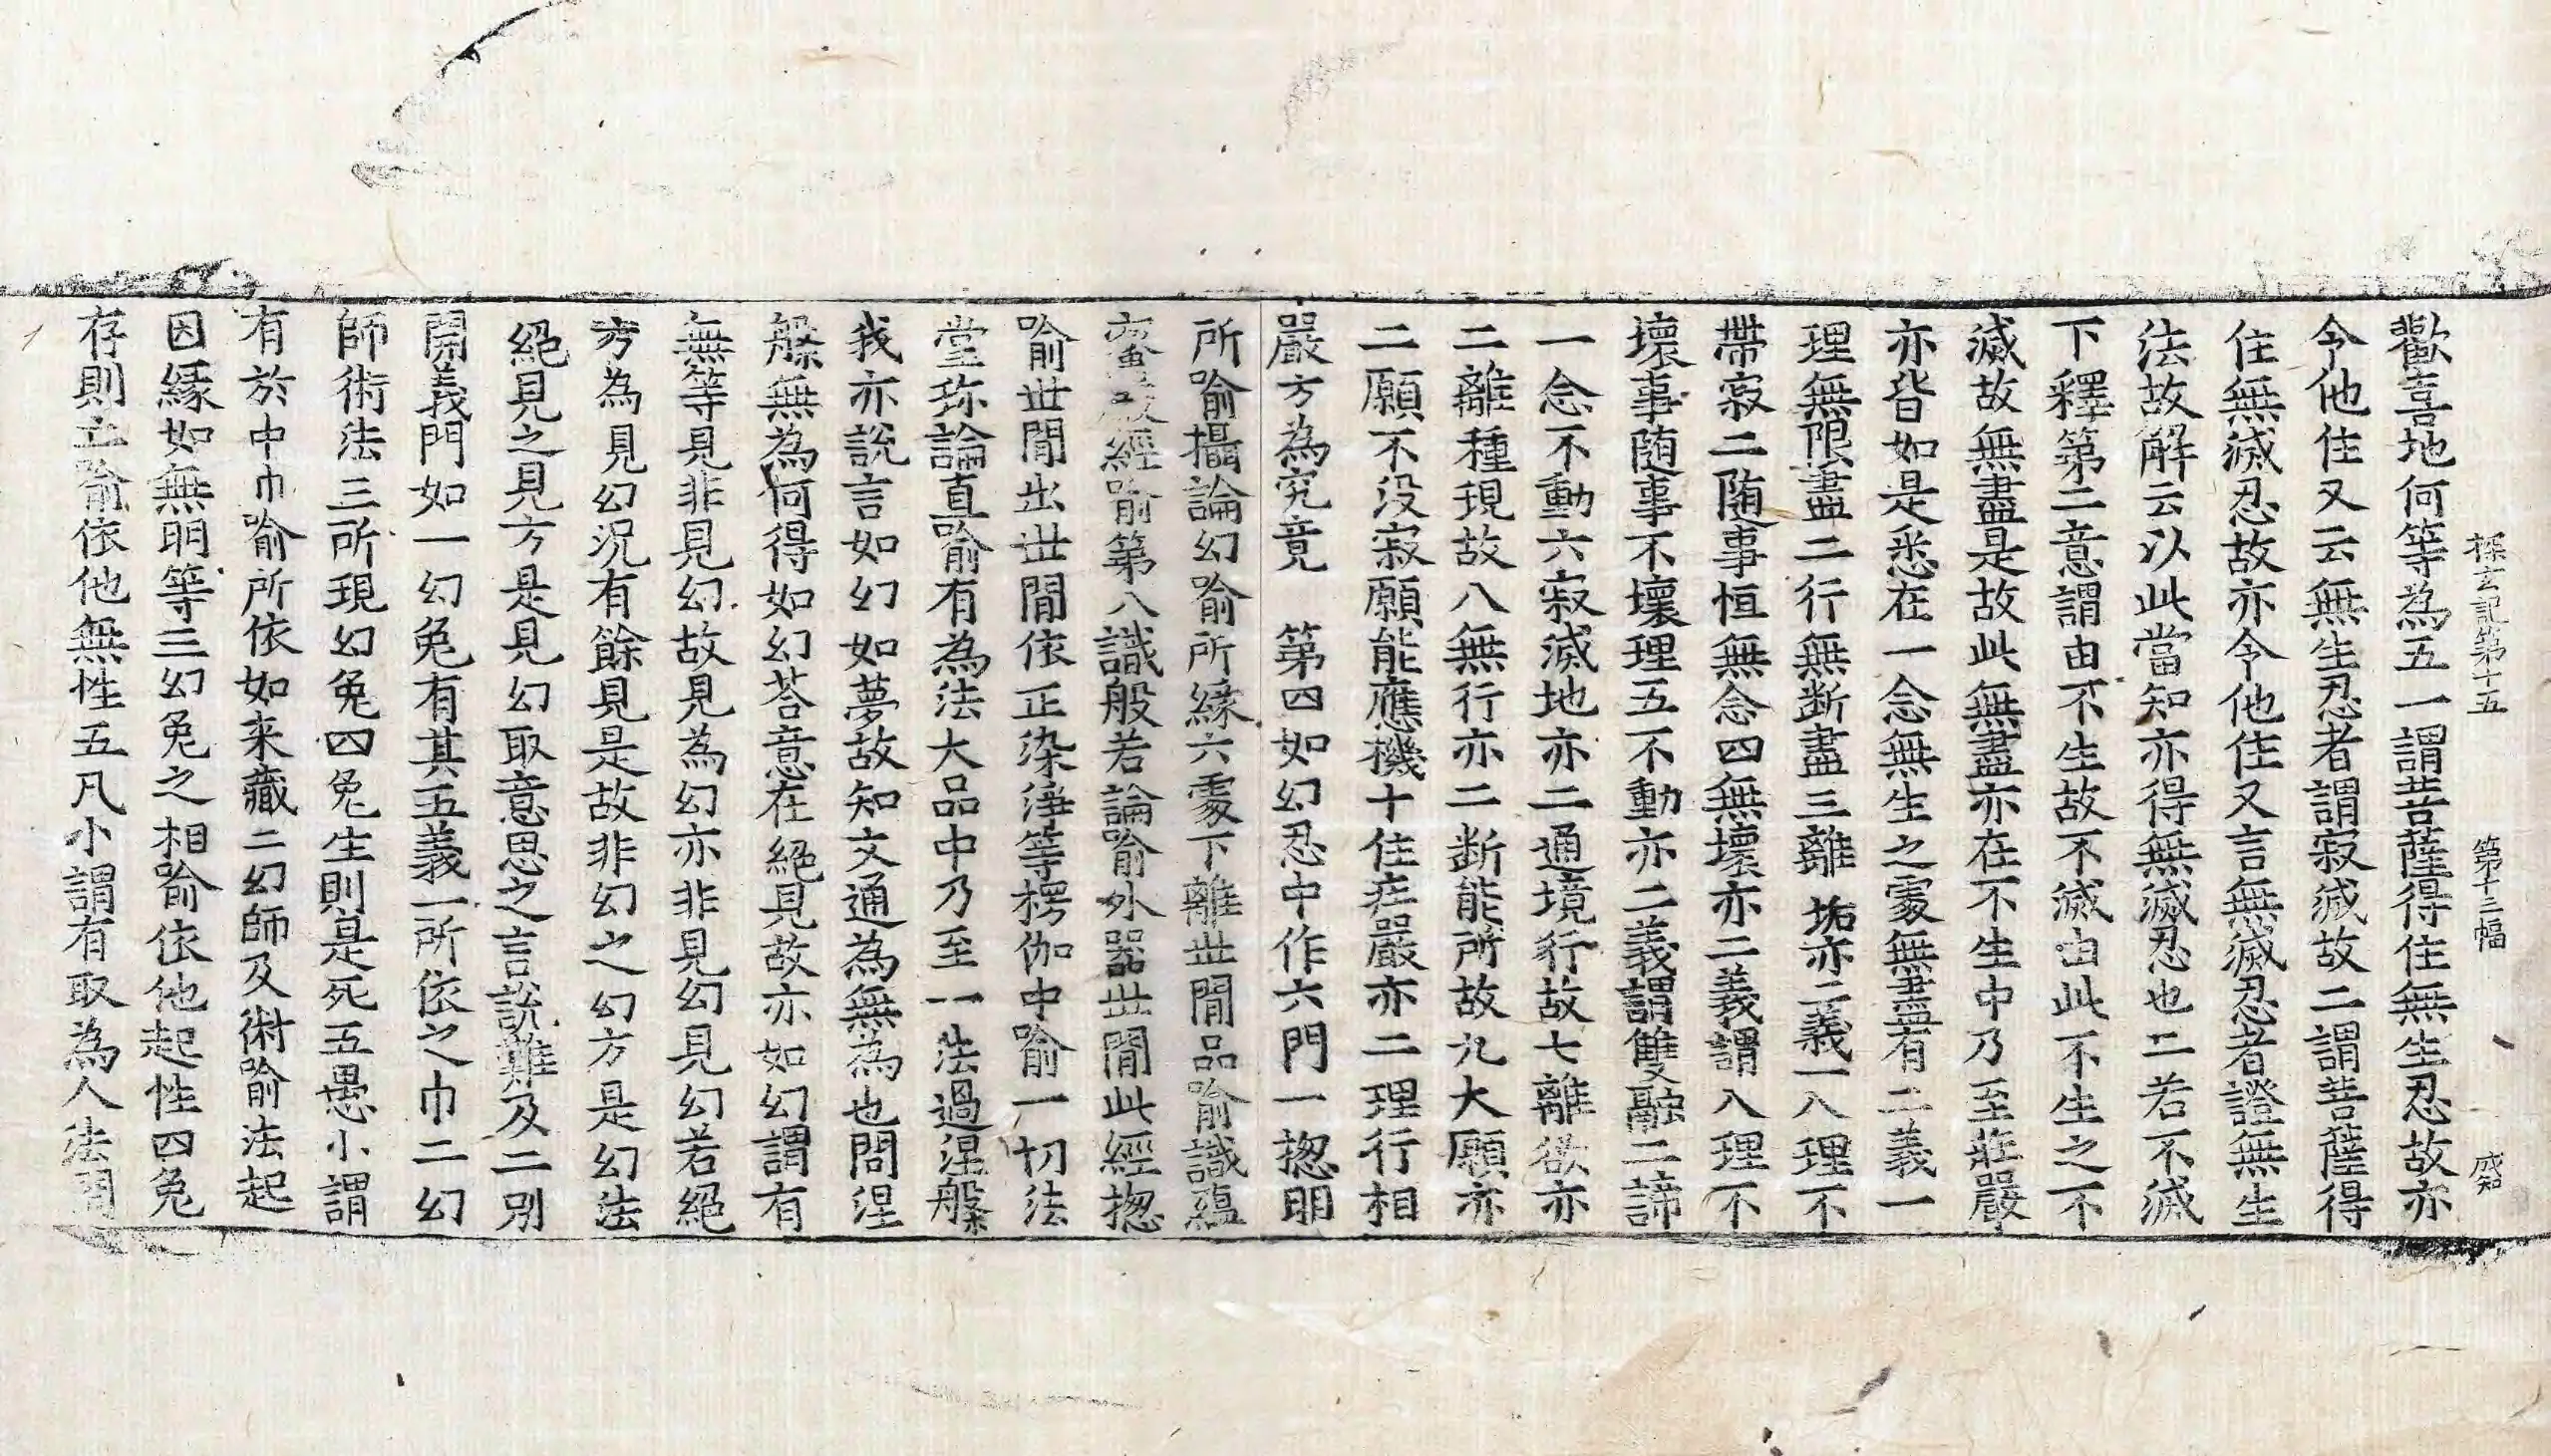 探玄記第十五 第十三幅 成知
歡喜地何等為五一謂菩薩得住無生忍故亦
令他住又云無生忍者謂寂滅故二謂菩薩得
住無滅忍故亦令他住又言無滅忍者證無生
法故解云以此當知亦得無滅忍也二若不滅
下釋第二意謂由不生故不滅由此不生之不
滅故無盡是故此無盡亦在不生中乃至莊嚴
亦皆如是悉在一念無生之處無盡有二義一
理無限盡二行無断盡三離垢亦二義一入理不
帶寂二随事恒無念四無壞亦二義謂入理不
壞事随事不壞理五不動亦二義謂雙融二諦
一念不動六寂滅地亦二通境行故七離欲亦
二離種現故八無行亦二断能所故九大願亦
二願不没寂願能應機十住疟嚴亦二理行相
嚴方為究竟 第四如幻忍中作六門一揔明
所喻攝論幻喻所緣六處下離世間品喻識蘊
密嚴經喻第八識般若論喻外器世間此經揔
喻世間出世間依正染淨等楞伽中喻一切法
掌珎論直喻有為法大品中乃至一法過涅槃
我亦說言如幻如夢故知文通為無為也問涅
槃無為何得如幻荅意在絕見故亦如幻謂有
無等見非見幻故見為幻亦非見幻見幻若絕
方為見幻況有餘見是故非幻之幻方是幻法
絕見之見方是見幻取意思之言說難及二別
開義門如一幻兔有其五義一所依之巾二幻
師術法三所現幻兔四兔生則是死五愚小謂
有於中巾喻所依如来藏二幻師及術喻法起
因緣如無明等三幻兔之相喻依他起性四兔
存則亡喻依他無性五凡小謂有取為人法問